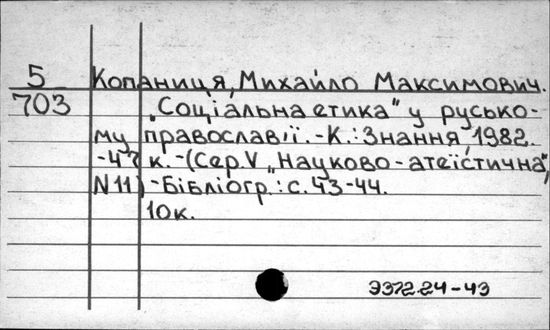 5 Копаниця, Михайло Максимович.
703 "Соціальна етика" у русько-
му православії. - К.: Знання, 1982.
-47 к. - (Сер. V "Науково-атеїстична",
N 11) - Бібліогр.: с. 43-44.
10к.
Э372.24-43